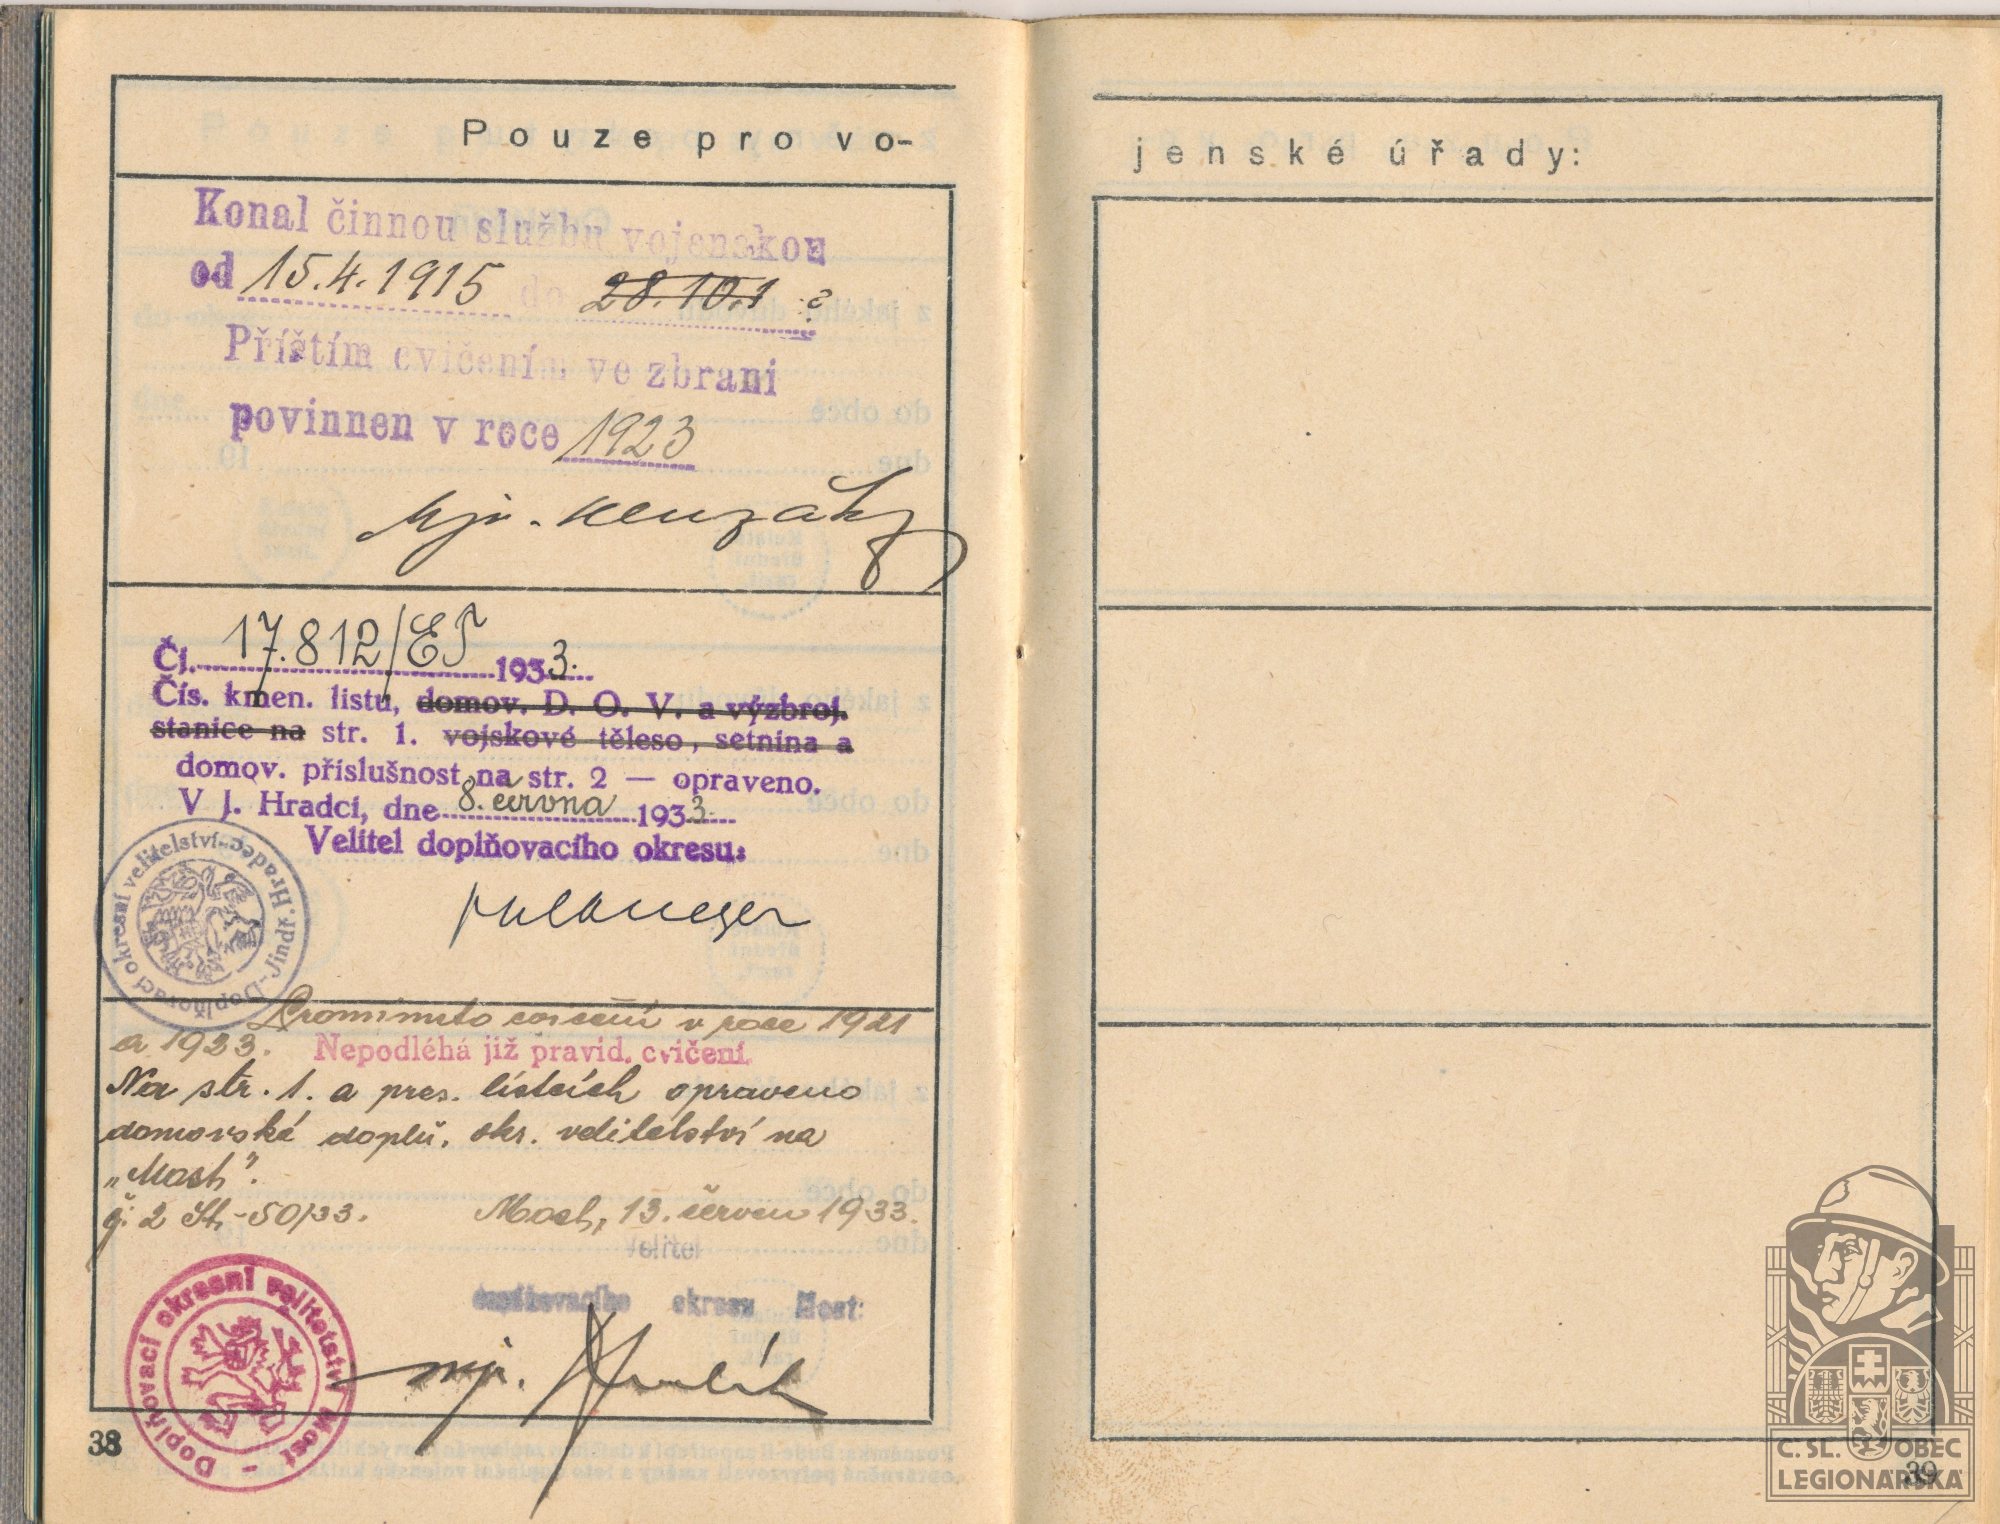 Pouze pro vo-
Konal činnou službu vojenskou
od 15.4.1915 do 28.10.1 ?
Příštím cvičením ve zbrani
povinnen v roce 1923
Mjr.
Čj. 17.812/ 1933.
Čís. kmen. listu, domov. D. O. V. a výzbroj.
stanice na str. 1. vojskové těleso, setnina a
domov. příslušnost na str. 2 — opraveno.
V J. Hradci, dne 8. června 1933.
Velitel doplňovacího okresu:
Doplňovací okresní velitelství - Jindř. Hradec -
Prominuto cvičení v roce 1921
a 1923. Nepodléhá již pravid. cvičení.
Na str. 1. a pres. lístcích opraveno
domovské doplň. okr. velitelství na
„Most".
čj: 2 -50/33. Most, 13. červen 1933.
Velitel
doplňovacího okresu Most:
mjr.
Doplňovací okresní velitelství Most -
38
jenské úřady:
39
Č. SL. OBEC
LEGIONÁŘSKÁ